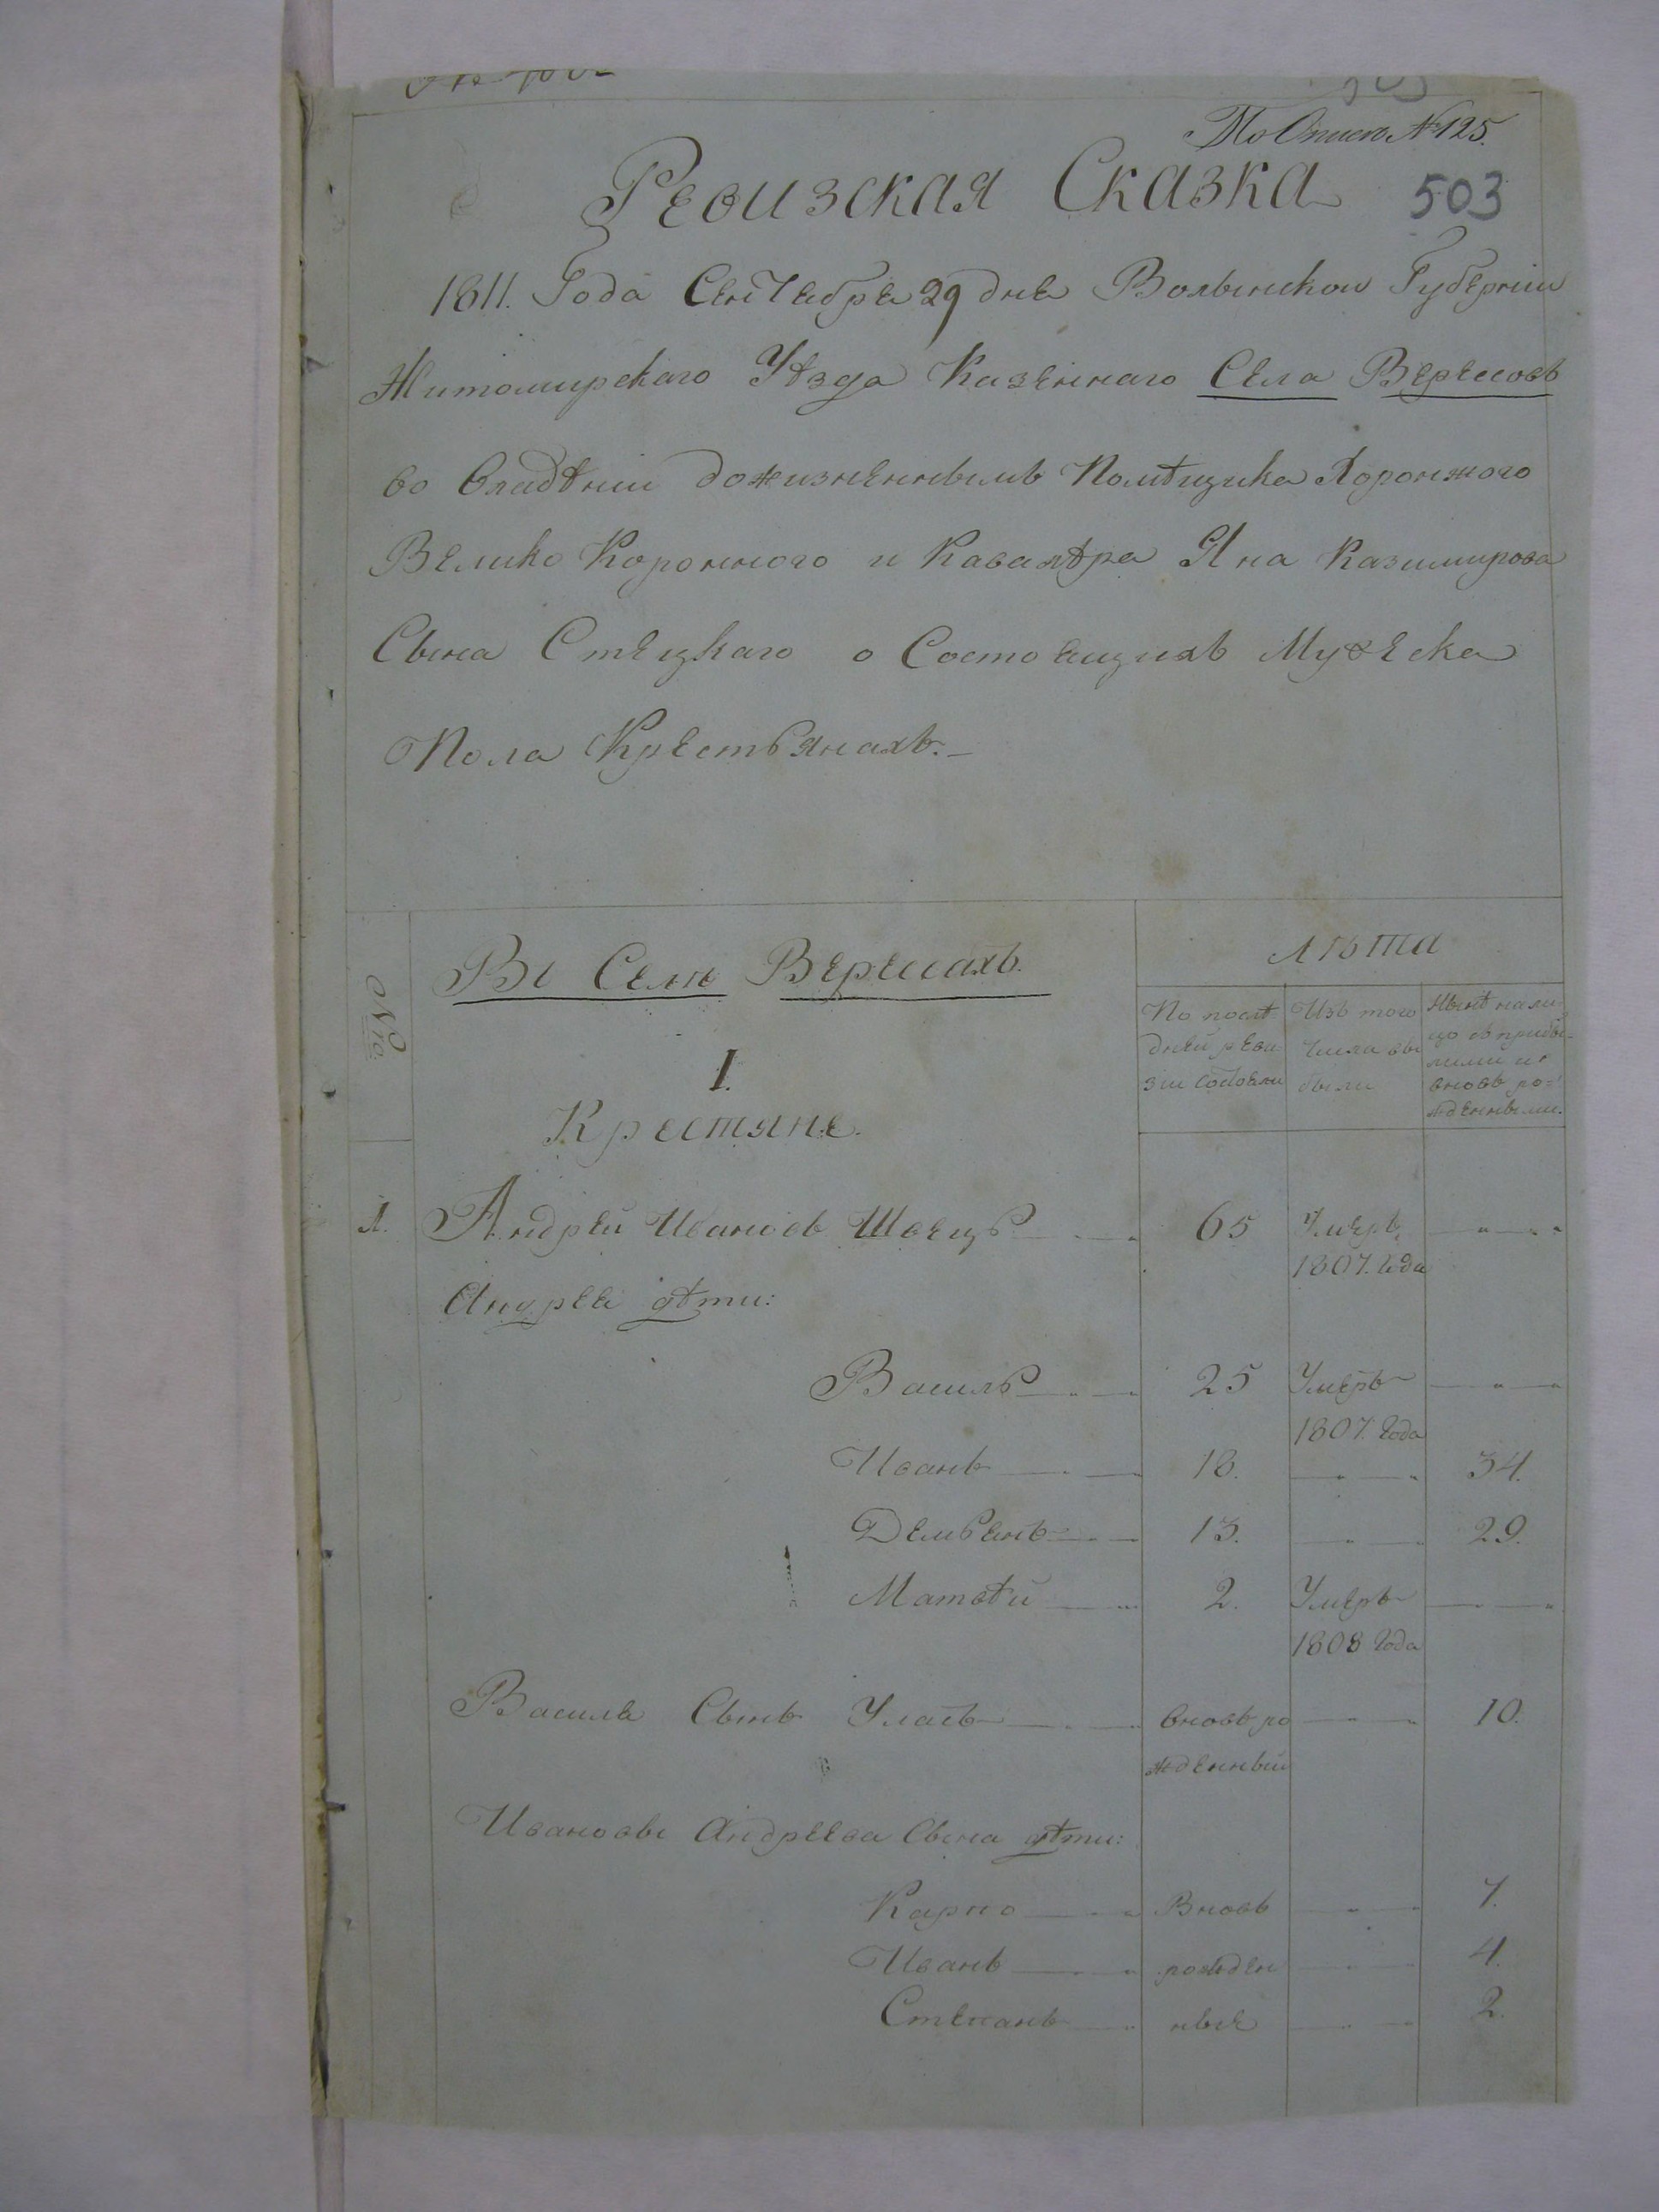 По Описи № 125.
503
Ревизская Сказка
1811. Года Сентебра 29 дне Волынскои Губерніи
Житомирскаго Уѣзда Казеннаго Села Вересовъ
во владѣніи дожизненнымъ Помѣщика Хоронжого
Велико Коронного и Кавалѣра Яна Казимирова
Сына Стецкаго о Состоещихъ Мужеска
Пола Крестьянахъ.
Nro.
Въ Селѣ Вересахъ.
Лѣта
По послѣ-
дней реви-
зіи Состоели
Изъ того
числа вы
были
Нынѣ нали-
цо съ прибы-
лими и
вновь ро=
жденными.
I.
Крестяне.
1. Андрей Ивановъ Швецъ 65 Умеръ
1807. Года
Андрея дѣти:
Василь 25 Умеръ
1807. Года
Иванъ 18. 34.
Демьенъ 13. 29.
Матвѣй 2. Умеръ
1808 Года
Василя Сынъ Уласъ вновь ро 10.
жденный
Ивановы Андреева Сына дѣти:
Карпо Вновь 7.
Иванъ рожден 4.
Степанъ ные 2.